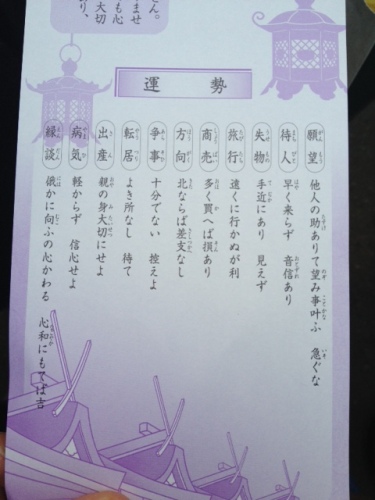 ん。
ませ
も心
大切
り、
運勢
願望 他人の助ありて望み事叶ふ 急ぐな
待人 早く来らず 音信あり
失物 手近にあり 見えず
旅行 遠くに行かぬが利
商売 多く買へば損あり
方向 北ならば差支なし
争事 十分でない 控えよ
転居 よき所なし 待て
出産 親の身大切にせよ
病気 軽からず 信心せよ
縁談 俄かに向ふの心かわる 心和にもてば吉